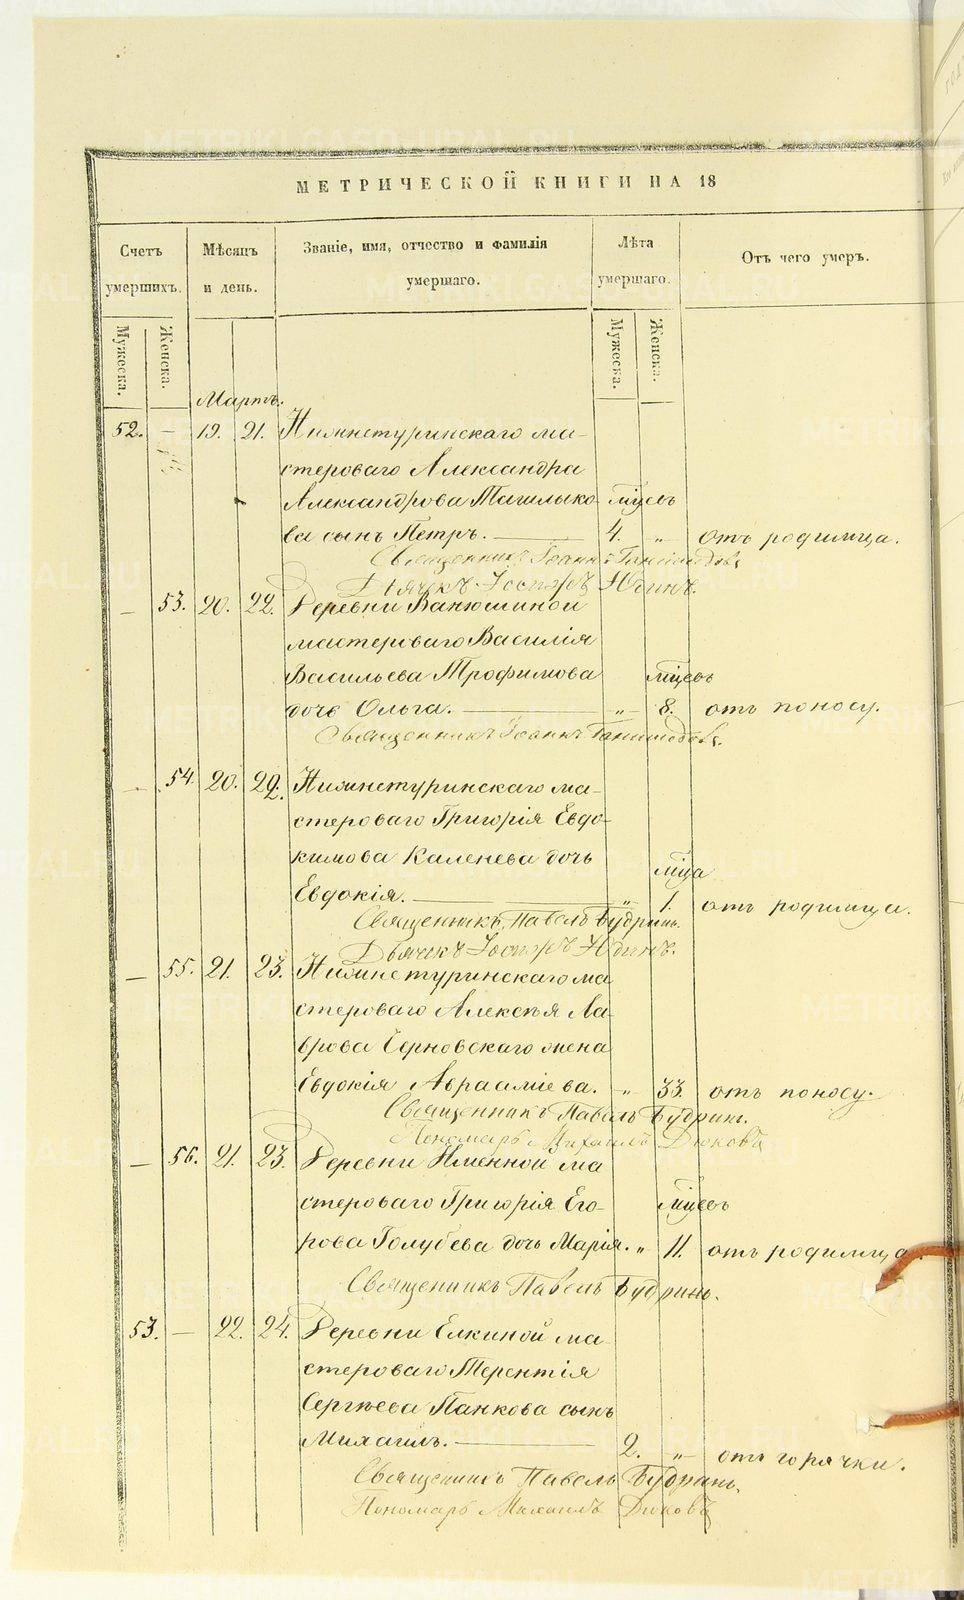 МЕТРИЧЕСКОЙ КНИГИ НА 18
Счетъ умершихъ.
Мѣсяцъ и день.
Званіе, имя, отчество и фамилія умершаго.
Лѣта умершаго.
Отъ чего умеръ.
Мужеска. Женска. Мужеска. Женска.
Мартъ.
52. — 19. 21. Нижнетуринскаго ма-
стероваго Александра
Александрова Тагилько- мцевъ
ва сынъ Петръ. — 4. „ отъ родимца.
Священникъ Іоаннъ
Дьячекъ Іосифъ Юдинъ.
— 53. 20. 22. Деревни Ванюшиной
мастероваго Василія
Васильева Трофимова мцевъ
дочь Ольга. — „ 8. отъ поносу.
Священникъ Іоаннъ
— 54. 20. 22. Нижнетуринскаго ма-
стероваго Григорія Евдо-
кимова Каленева дочь мца
Евдокія. — „ 1. отъ родимца.
Священникъ Павелъ Будринъ.
Дьячекъ Іосифъ Юдинъ.
— 55. 21. 23. Нижнетуринскаго ма
стероваго Алексѣя Ла-
врова Черновскаго жена
Евдокія Авраамiева. „ 33. отъ поносу.
Священникъ Павелъ Будринъ.
Пономарь Михаилъ Дюковъ
— 56. 21. 23. Деревни Именной ма
стероваго Григорія Его- мцевъ
рова Голубева дочь Марія. „ 11. отъ родимца.
Священникъ Павелъ Будринъ.
53. — 22. 24. Деревни Елкиной ма-
стероваго Терентія
Сергѣева Панкова сынъ
Михаилъ. — 2. „ отъ горячки.
Священникъ Павелъ Будринъ.
Пономарь Михаилъ Дюковъ